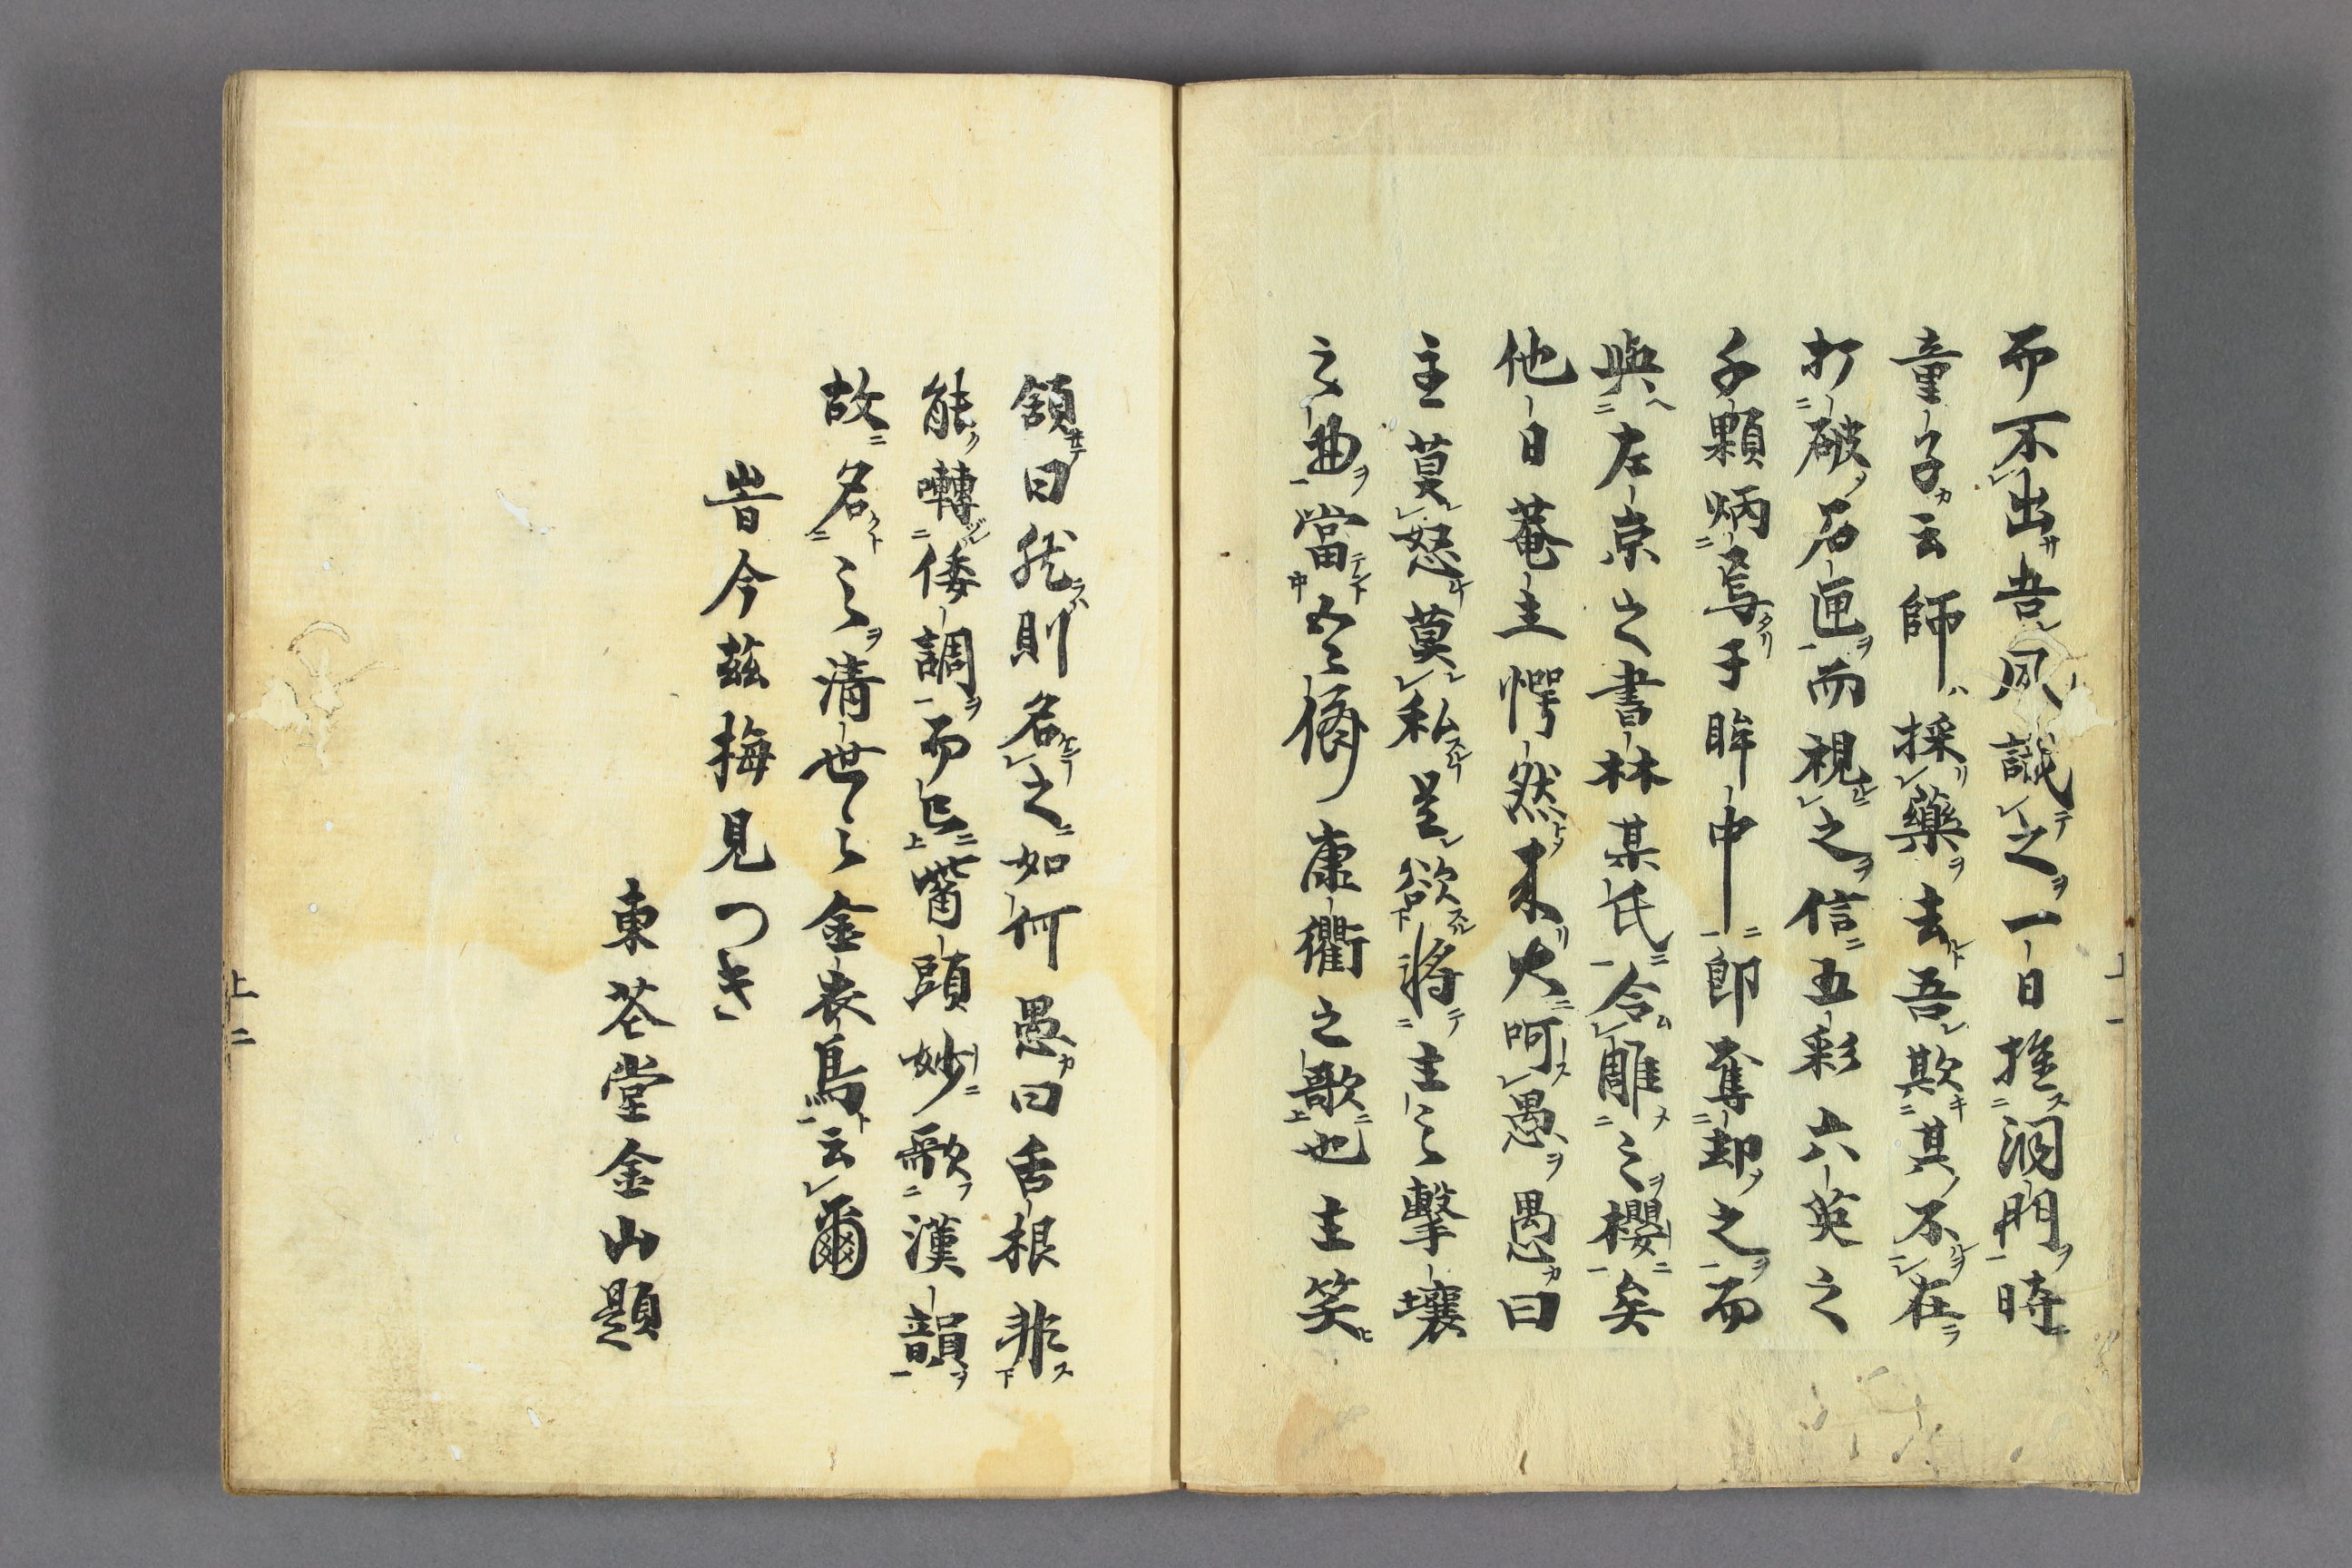 而不出吾夙識之一日推洞門時
童子云師採藥去吾欺其不在
打破石匣而視之信五彩六英之
千顆炳焉于眸中即奪却之而
與左京之書林某氏令雕之櫻矣
他日菴主愕然来大呵愚愚曰
主莫怒莫私是欲將主之擊壤
之曲當康衢之歌也主笑
額曰然則名之如何愚曰舌根非
能囀倭調而已嘴頭妙歌漢韻
故名之清世之金衣鳥云爾
旹今茲梅見つき
東荅堂金山題
上一
上二